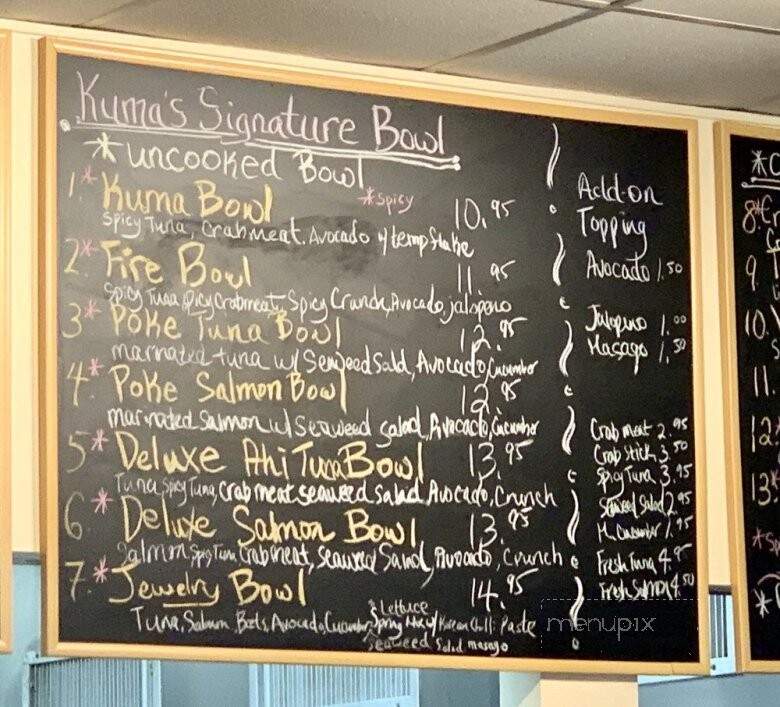 Kuma's Signature Bowl
*uncooked Bowl
1.* Kuma Bowl *Spicy 10.95
Spicy Tuna, Crabmeat, Avocado w/ tempflake
2.* Fire Bowl 11.95
Spicy Tuna, Spicy Crabmeat, Spicy Crunch, Avocado, jalapeno
3* Poke Tuna Bowl 12.95
marinated tuna w/ Seaweed Salad, Avocado, Cucumber
4.* Poke Salmon Bowl 12.95
marinated Salmon w/ Seaweed Salad, Avocado, Cucumber
5* Deluxe Ahi Tuna Bowl 13.95
Tuna, Spicy Tuna, Crab meat seaweed Salad, Avocado, Crunch
6.* Deluxe Salmon Bowl 13.95
Salmon Spicy Tuna Crab meat, seaweed Salad, Avocado, Crunch
7.* Jewelry Bowl 14.95
Tuna, Salmon, Beets, Avocado, Cucumber, Lettuce
Spring Mix w/ Korean Chili Paste
Seaweed Salad masago
Add-on
Topping
Avocado 1.50
Jalapeno 1.00
Masago 1.50
Crab meat 2.95
Crab Stick 3.50
Spicy Tuna 3.95
Seaweed Salad 2.95
M. Cucumber 1.95
Fresh Tuna 4.95
Fresh Salmon 4.50
menupix
*C
8*
9.
10.
11.
12*
13*